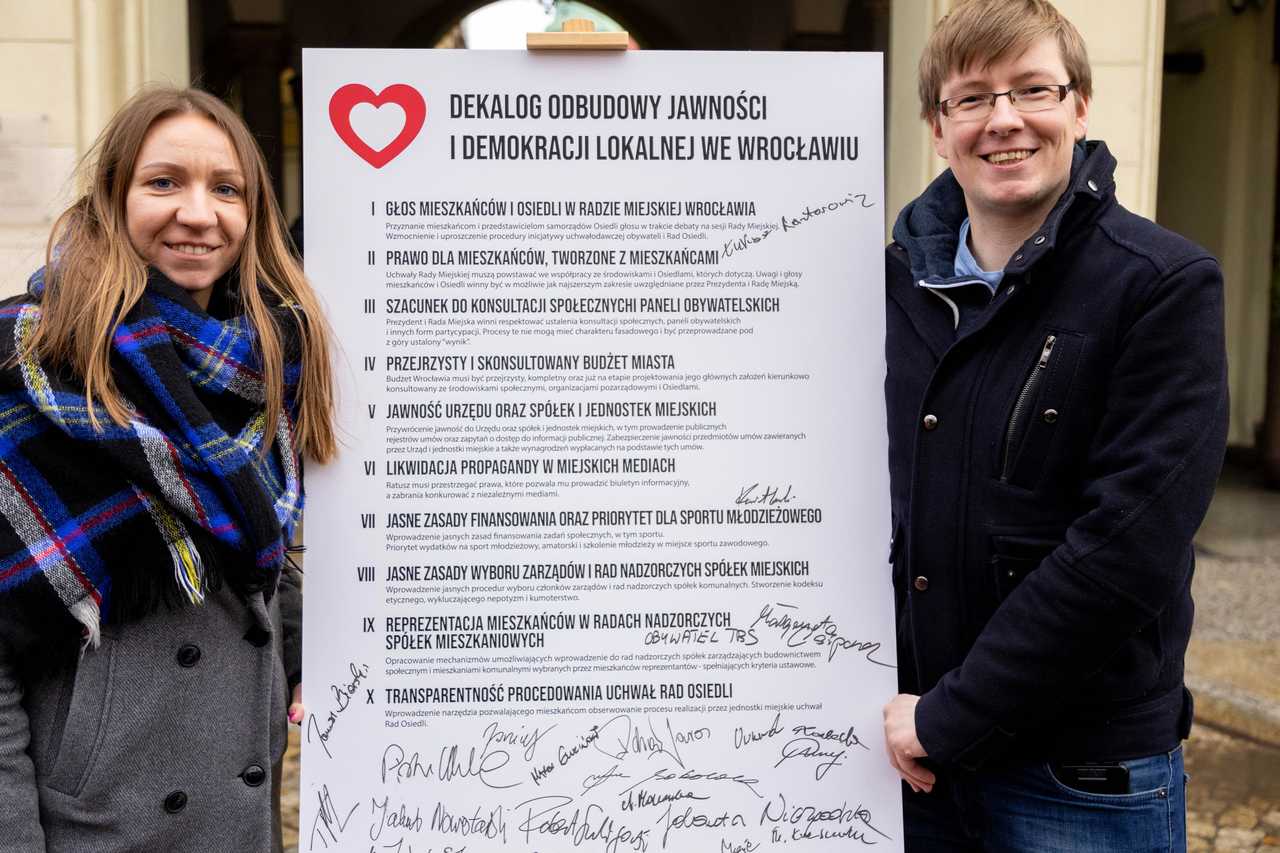 DEKALOG ODBUDOWY JAWNOŚCI
I DEMOKRACJI LOKALNEJ WE WROCŁAWIU
I GŁOS MIESZKAŃCÓW I OSIEDLI W RADZIE MIEJSKIEJ WROCŁAWIA
Przyznanie mieszkańcom i przedstawicielom samorządów Osiedli głosu w trakcie debaty na sesji Rady Miejskiej.
Wzmocnienie i uproszczenie procedury inicjatywy uchwałodawczej obywateli i Rad Osiedli.
Łukasz Kantorowicz
II PRAWO DLA MIESZKAŃCÓW, TWORZONE Z MIESZKAŃCAMI
Uchwały Rady Miejskiej muszą powstawać we współpracy ze środowiskami i Osiedlami, których dotyczą. Uwagi i głosy
mieszkańców i Osiedli winny być w możliwie jak najszerszym zakresie uwzględniane przez Prezydenta i Radę Miejską.
III SZACUNEK DO KONSULTACJI SPOŁECZNYCHI PANELI OBYWATELSKICH
Prezydent i Rada Miejska winni respektować ustalenia konsultacji społecznych, paneli obywatelskich
i innych form partycypacji. Procesy te nie mogą mieć charakteru fasadowego i być przeprowadzane pod
z góry ustalony "wynik".
IV PRZEJRZYSTY I SKONSULTOWANY BUDŻET MIASTA
Budżet Wrocławia musi być przejrzysty, kompletny oraz już na etapie projektowania jego głównych założeń kierunkowo
konsultowany ze środowiskami społecznymi, organizacjami pozarządowymi i Osiedlami.
V JAWNOŚĆ URZĘDU ORAZ SPÓŁEK I JEDNOSTEK MIEJSKICH
Przywrócenie jawność do Urzędu oraz spółek i jednostek miejskich, w tym prowadzenie publicznych
rejestrów umów oraz zapytań o dostęp do informacji publicznej. Zabezpieczenie jawności przedmiotów umów zawieranych
przez Urząd i jednostki miejskie a także wynagrodzeń wypłacanych na podstawie tych umów.
VI LIKWIDACJA PROPAGANDY W MIEJSKICH MEDIACH
Ratusz musi przestrzegać prawa, które pozwala mu prowadzić biuletyn informacyjny,
a zabrania konkurować z niezależnymi mediami.
VII JASNE ZASADY FINANSOWANIA ORAZ PRIORYTET DLA SPORTU MŁODZIEŻOWEGO
Wprowadzenie jasnych zasad finansowania zadań społecznych, w tym sportu.
Priorytet wydatków na sport młodzieżowy, amatorski i szkolenie młodzieży w miejsce sportu zawodowego.
VIII JASNE ZASADY WYBORU ZARZĄDÓW I RAD NADZORCZYCH SPÓŁEK MIEJSKICH
Wprowadzenie jasnych procedur wyboru członków zarządów i rad nadzorczych spółek komunalnych. Stworzenie kodeksu
etycznego, wykluczającego nepotyzm i kumoterstwo.
IX REPREZENTACJA MIESZKAŃCÓW W RADACH NADZORCZYCH
SPÓŁEK MIESZKANIOWYCH
OBYWATEL TBS
Małgorzata
Opracowanie mechanizmów umożliwiających wprowadzenie do rad nadzorczych spółek zarządzających budownictwem
społecznym i mieszkaniami komunalnymi wybranych przez mieszkańców reprezentantów - spełniających kryteria ustawowe.
X TRANSPARENTNOŚĆ PROCEDOWANIA UCHWAŁ RAD OSIEDLI
Wprowadzenie narzędzia pozwalającego mieszkańcom obserwowanie procesu realizacji przez jednostki miejskie uchwał
Rad Osiedli.
Jakub Nowotarski
Jolanta Niezgodzka